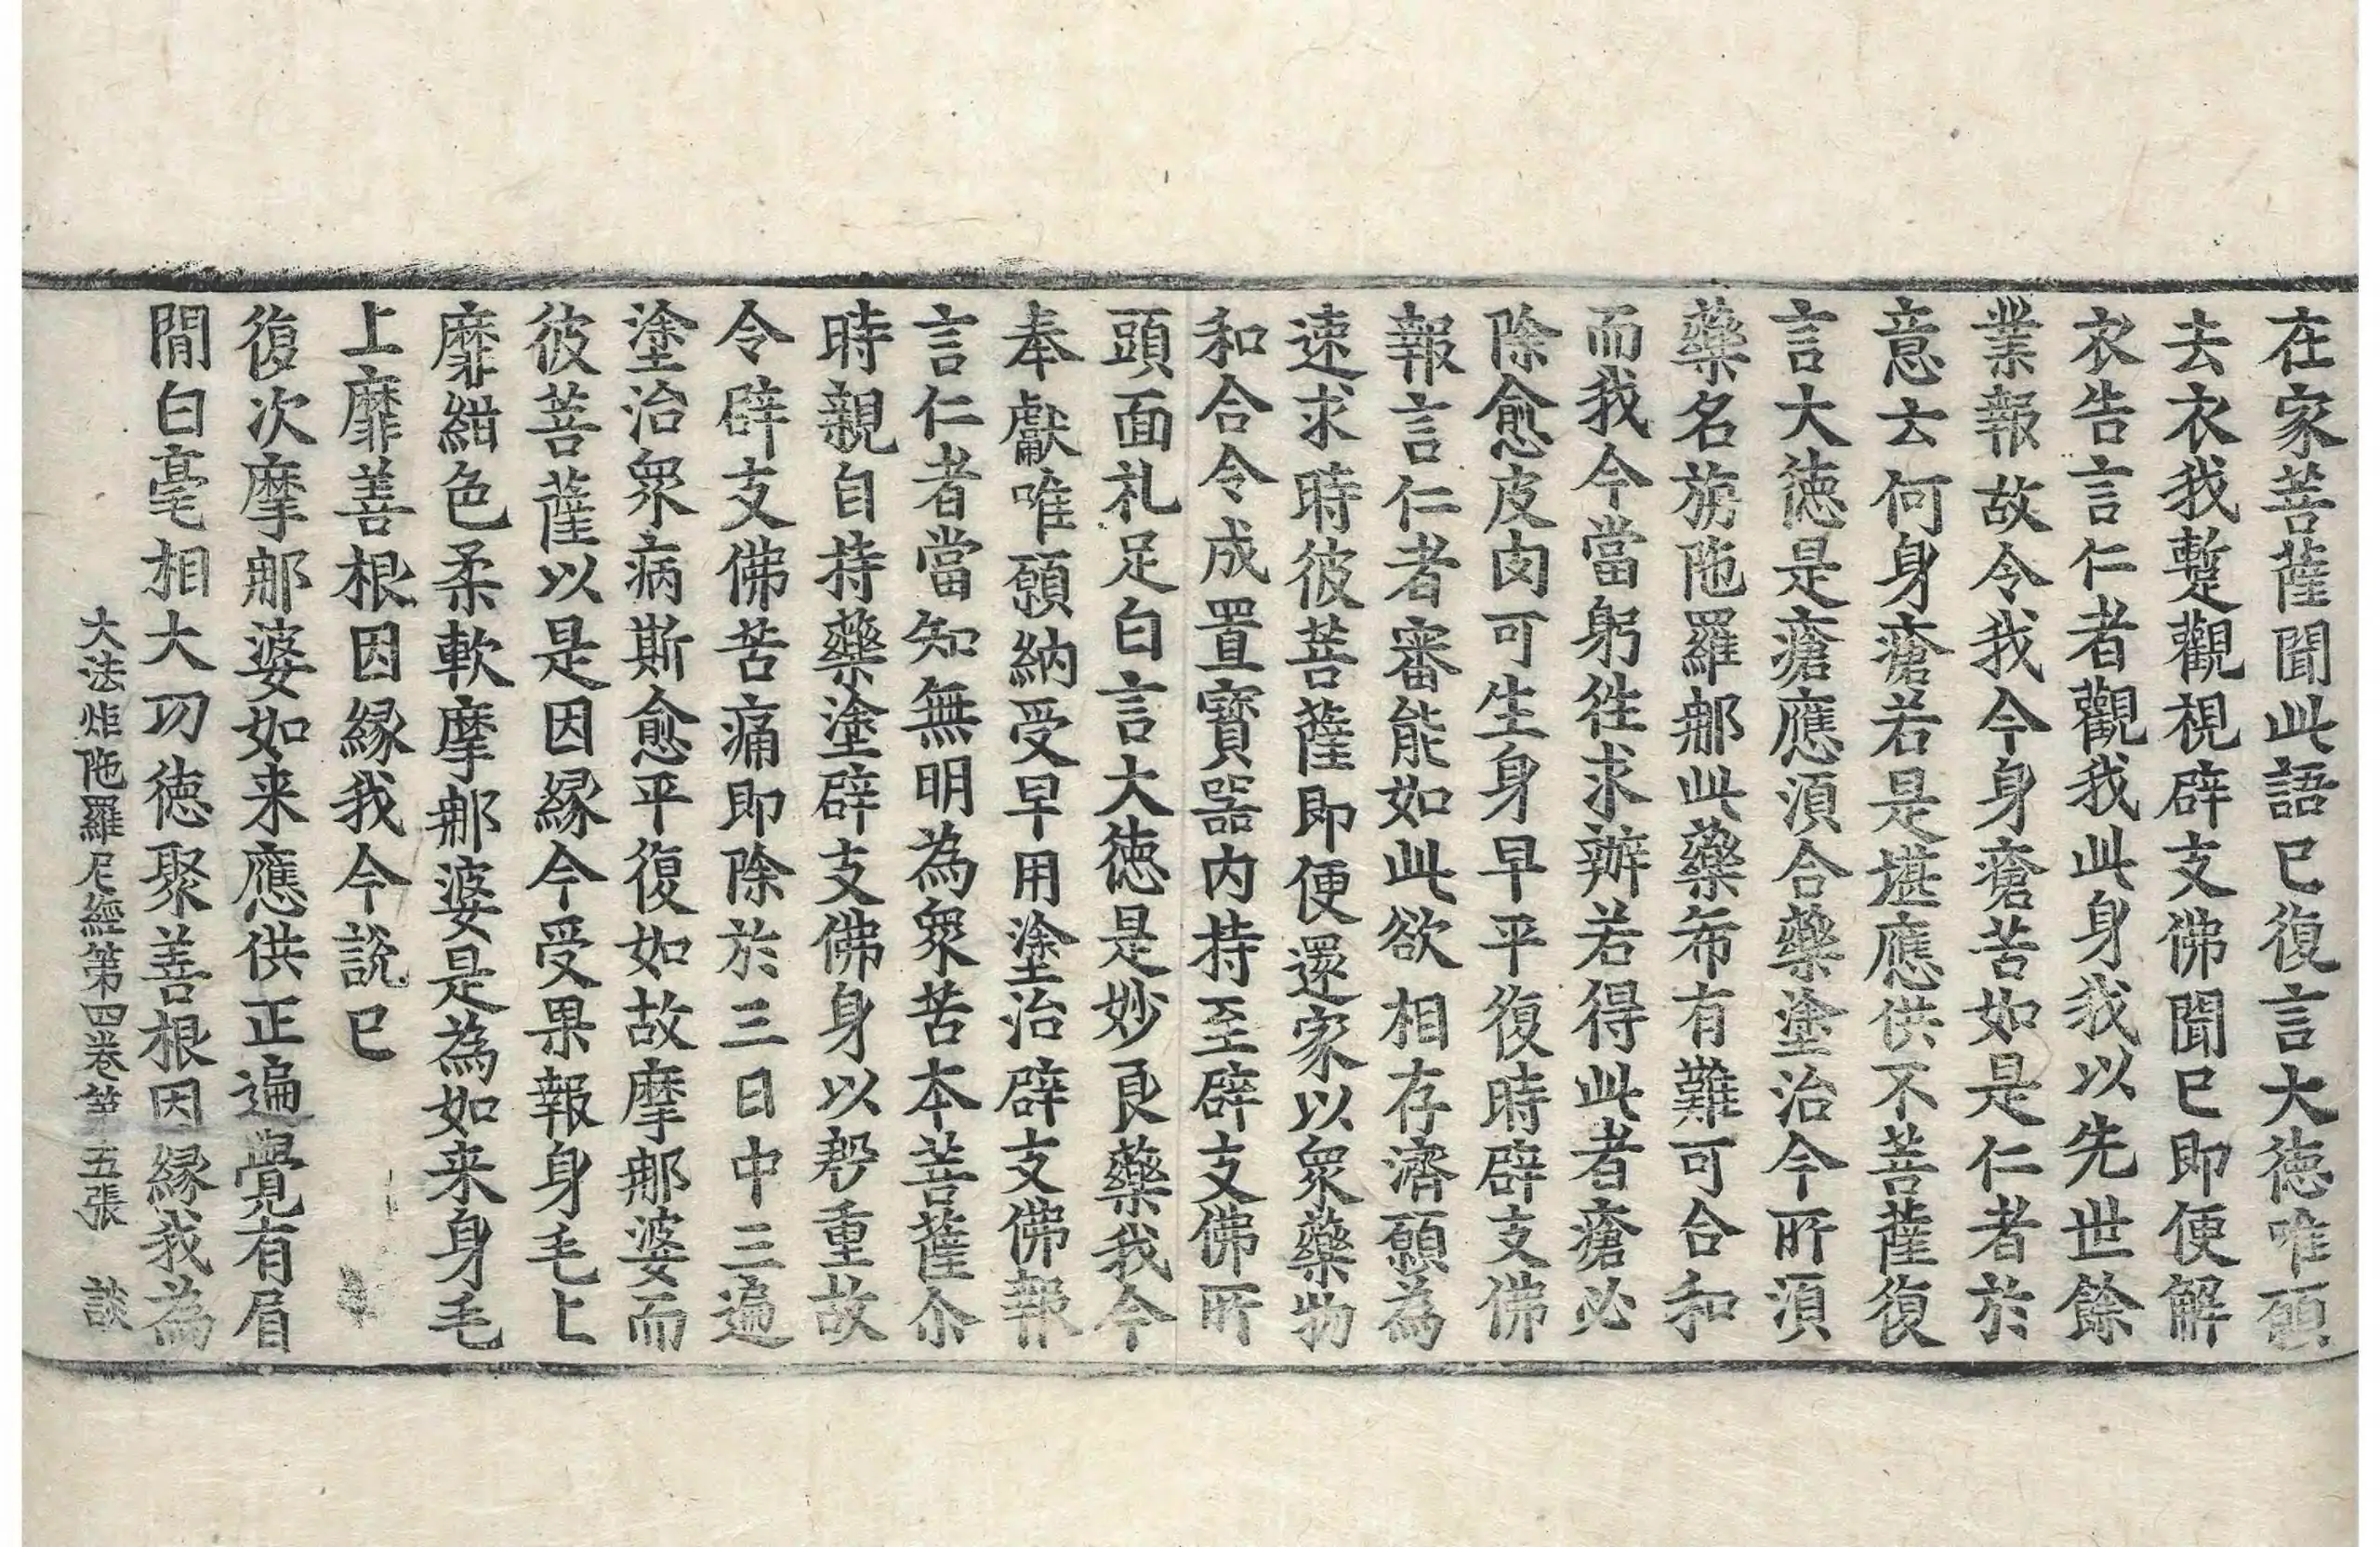 在家菩薩聞此語已復言大徳唯願
去衣我蹔觀視辟支佛聞已即便解
衣告言仁者觀我此身我以先世餘
業報故令我今身瘡苦如是仁者於
意云何身瘡若是堪應供不菩薩復
言大徳是瘡應湏合藥塗治今所湏
藥名旃陁羅那此藥希有難可合和
而我今當躬徃求辦若得此者瘡必
除愈皮肉可生身早平復時辟支佛
報言仁者審能如此欲相存濟願為
速求時彼菩薩即便還家以衆藥物
和合令成置寳器內持至辟支佛所
頭面礼足白言大徳是妙良藥我今
奉獻唯願納受早用塗治辟支佛報
言仁者當知無明為衆苦本菩薩尒
時親自持藥塗辟支佛身以慇重故
令辟支佛苦痛即除於三日中三遍
塗治衆病斯愈平復如故摩那婆而
彼菩薩以是因縁今受果報身毛上
靡紺色柔軟摩那婆是為如来身毛
上靡善根因縁我今說已
復次摩那婆如来應供正遍覺有眉
間白毫相大功徳聚善根因縁我為
大法炬陁羅尼經第四卷 第五張 談